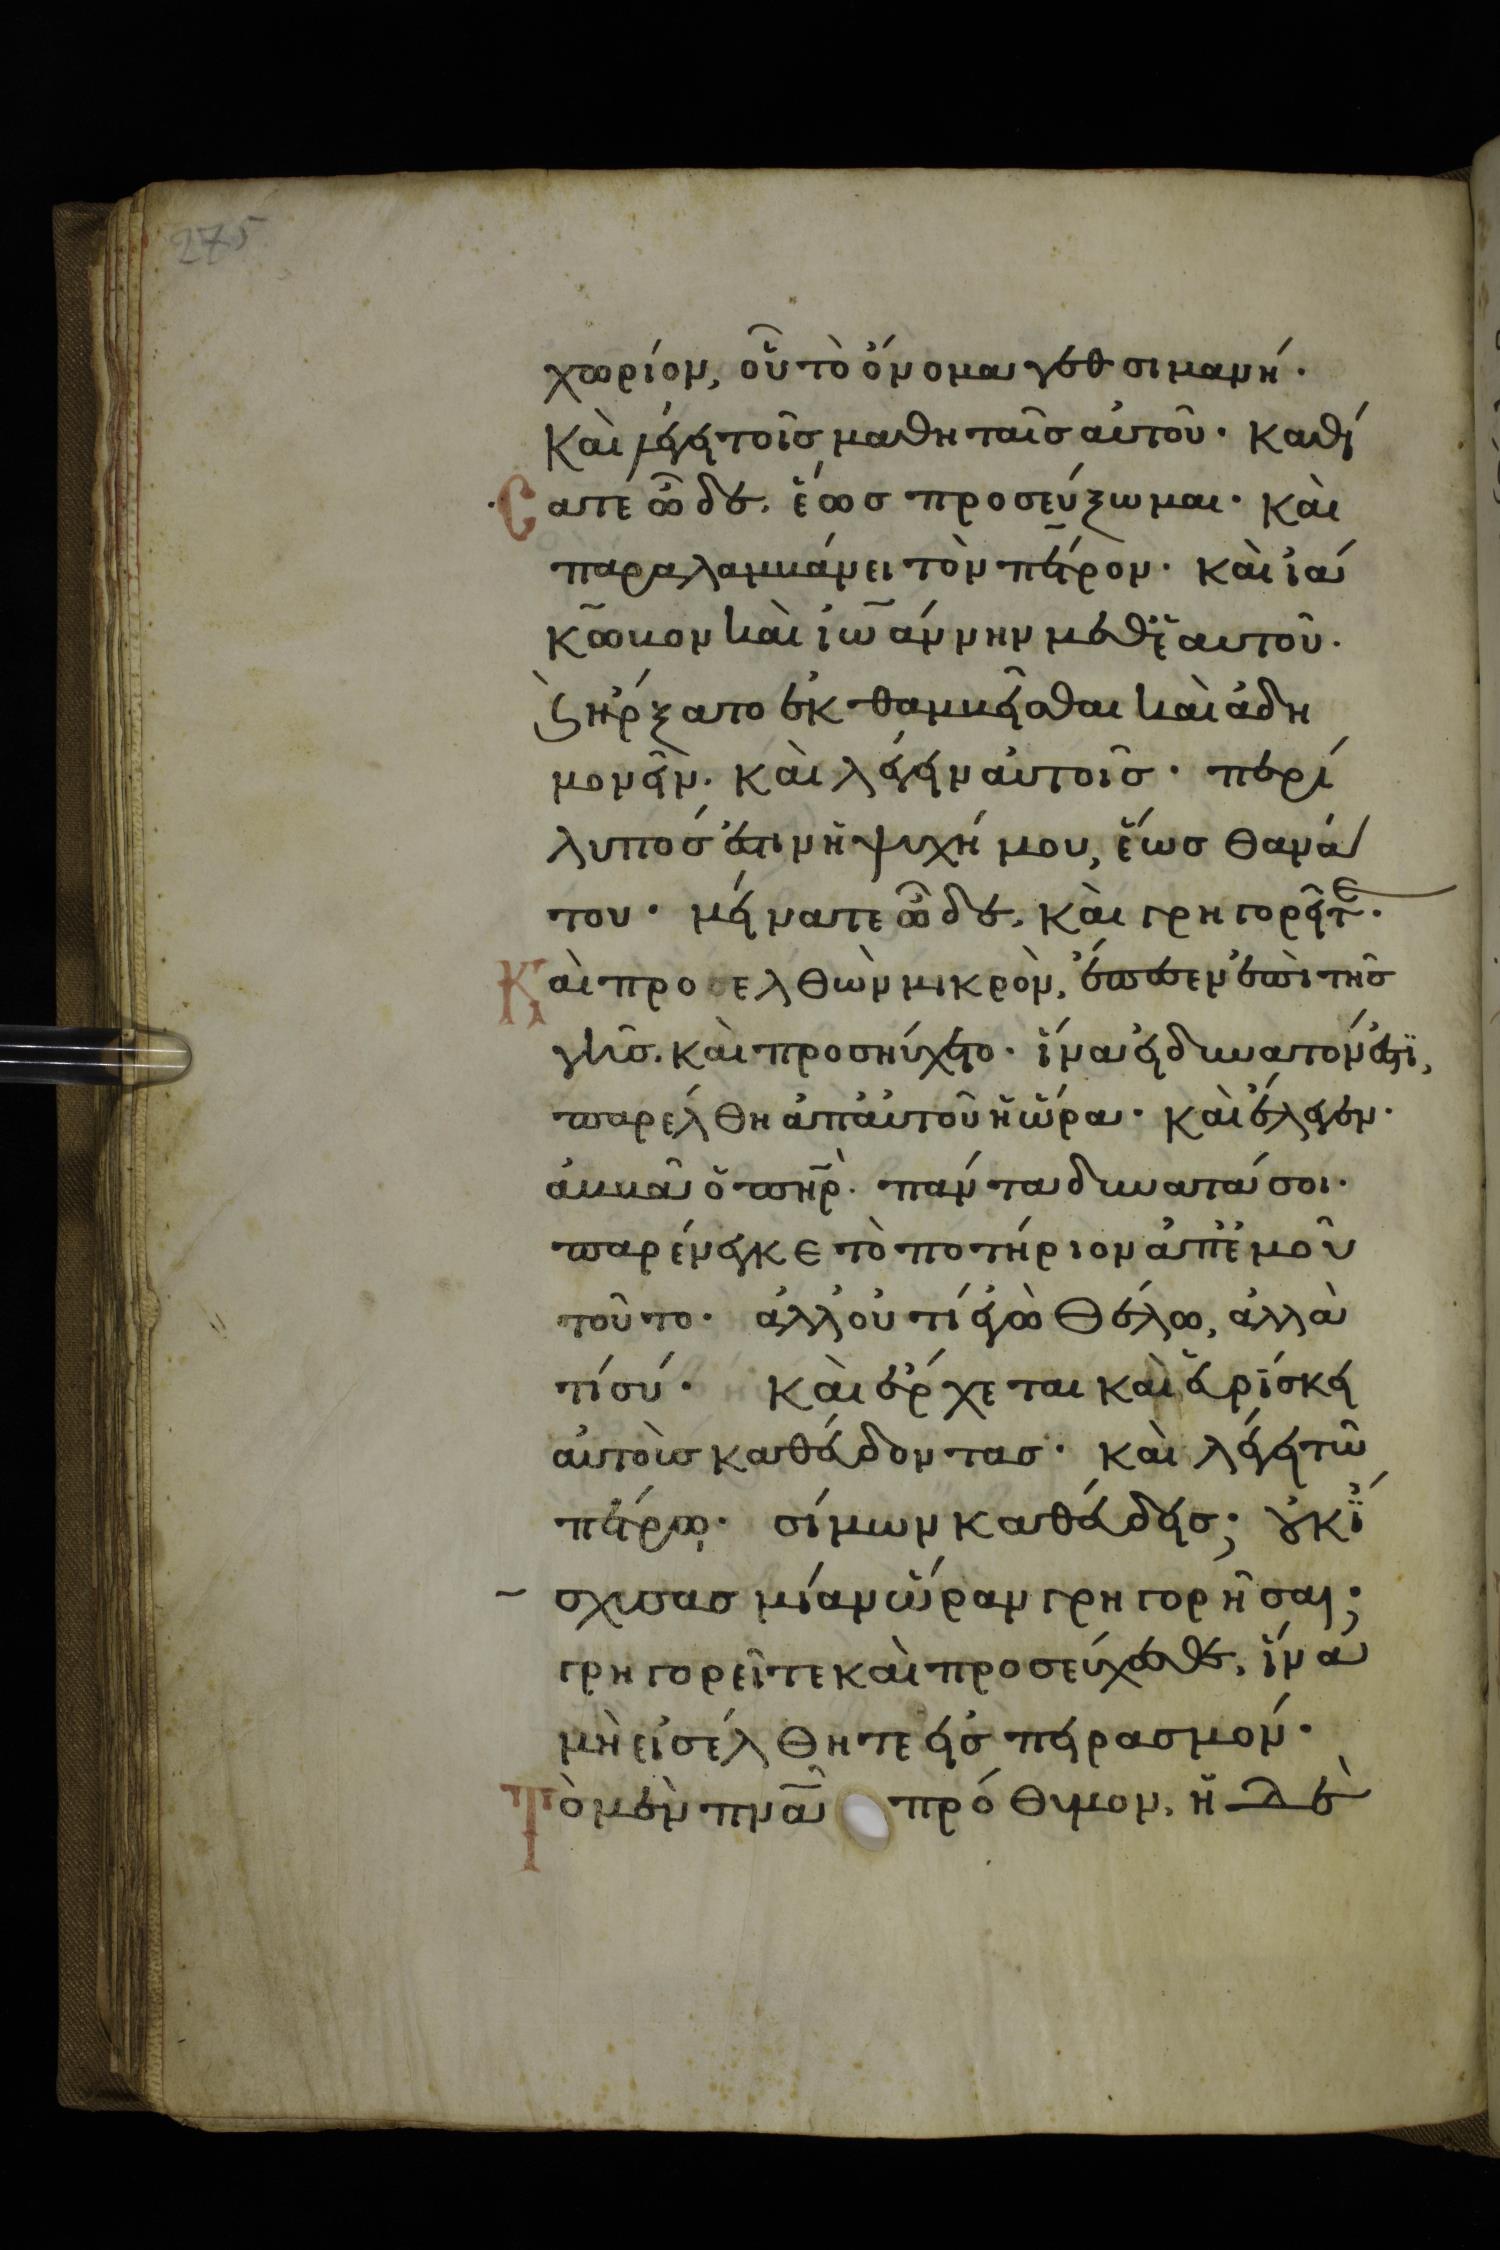 275
χωρίον, οὗ τὸ ὄνομα γεθσιμανή·
Καὶ λέγει τοῖς μαθηταῖς αὐτοῦ· καθί
σατε ὧδε, ἕως προσεύξωμαι· καὶ
παραλαμβάνει τὸν πέτρον· καὶ ἰά
κωβον καὶ ἰωάννην μεθ' ἑαυτοῦ.
ϗ ἤρξατο ἐκθαμβεῖσθαι καὶ ἀδη
μονεῖν. καὶ λέγει αὐτοῖς· περί
λυπός ἐστιν ἡ ψυχή μου, ἕως θανά
του· μείνατε ὧδε, καὶ γρηγορεῖτε·
Καὶ προσελθὼν μικρὸν, ἔπεσεν ἐπὶ τῆς
γῆς. καὶ προσηύχετο· ἵνα εἰ δυνατόν ἐστι,
παρέλθη ἀπ' αὐτοῦ ἡ ὥρα· καὶ ἔλεγεν·
ἀββᾶ ὁ πηρ. πάντα δυνατά σοι·
παρένεγκε τὸ ποτήριον ἀπ' ἐμοῦ
τοῦτο· ἀλλ' οὐ τί ἐγὼ θέλω, ἀλλὰ
τί σύ· καὶ ἔρχεται καὶ εὑρίσκει
αὐτοὺς καθεύδοντας· καὶ λέγει τῶ
πέτρω· σίμων καθεύδεις; οὐκ ἴ
σχυσας μίαν ὥραν γρηγορῆσαι;
γρηγορεῖτε καὶ προσεύχεσθε, ἵνα
μὴ εἰσέλθητε εἰς πειρασμόν·
Τὸ μὲν πνα πρόθυμον, ἡ δὲ